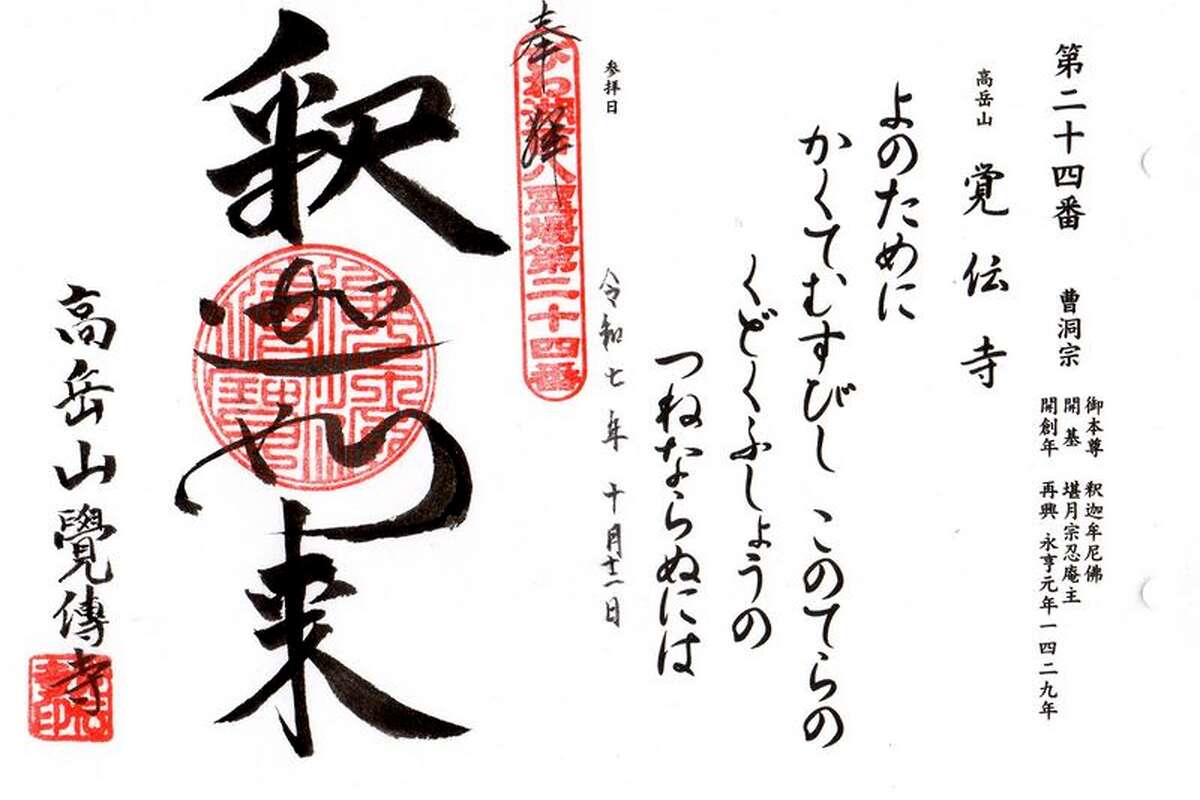 第二十四番 曹洞宗
御本尊 釈迦牟尼佛
開基 堪月宗忍庵主
開創年 再興 永亨元年一四二九年
高岳山 覚伝寺
よのために
かくてむすびし このてらの
くどくふしょうの
つねならぬには
参拝日 令和七年 十月十二日
奉拝
びわ湖百八霊場第二十四番
釈迦如来
高岳山覺傳寺